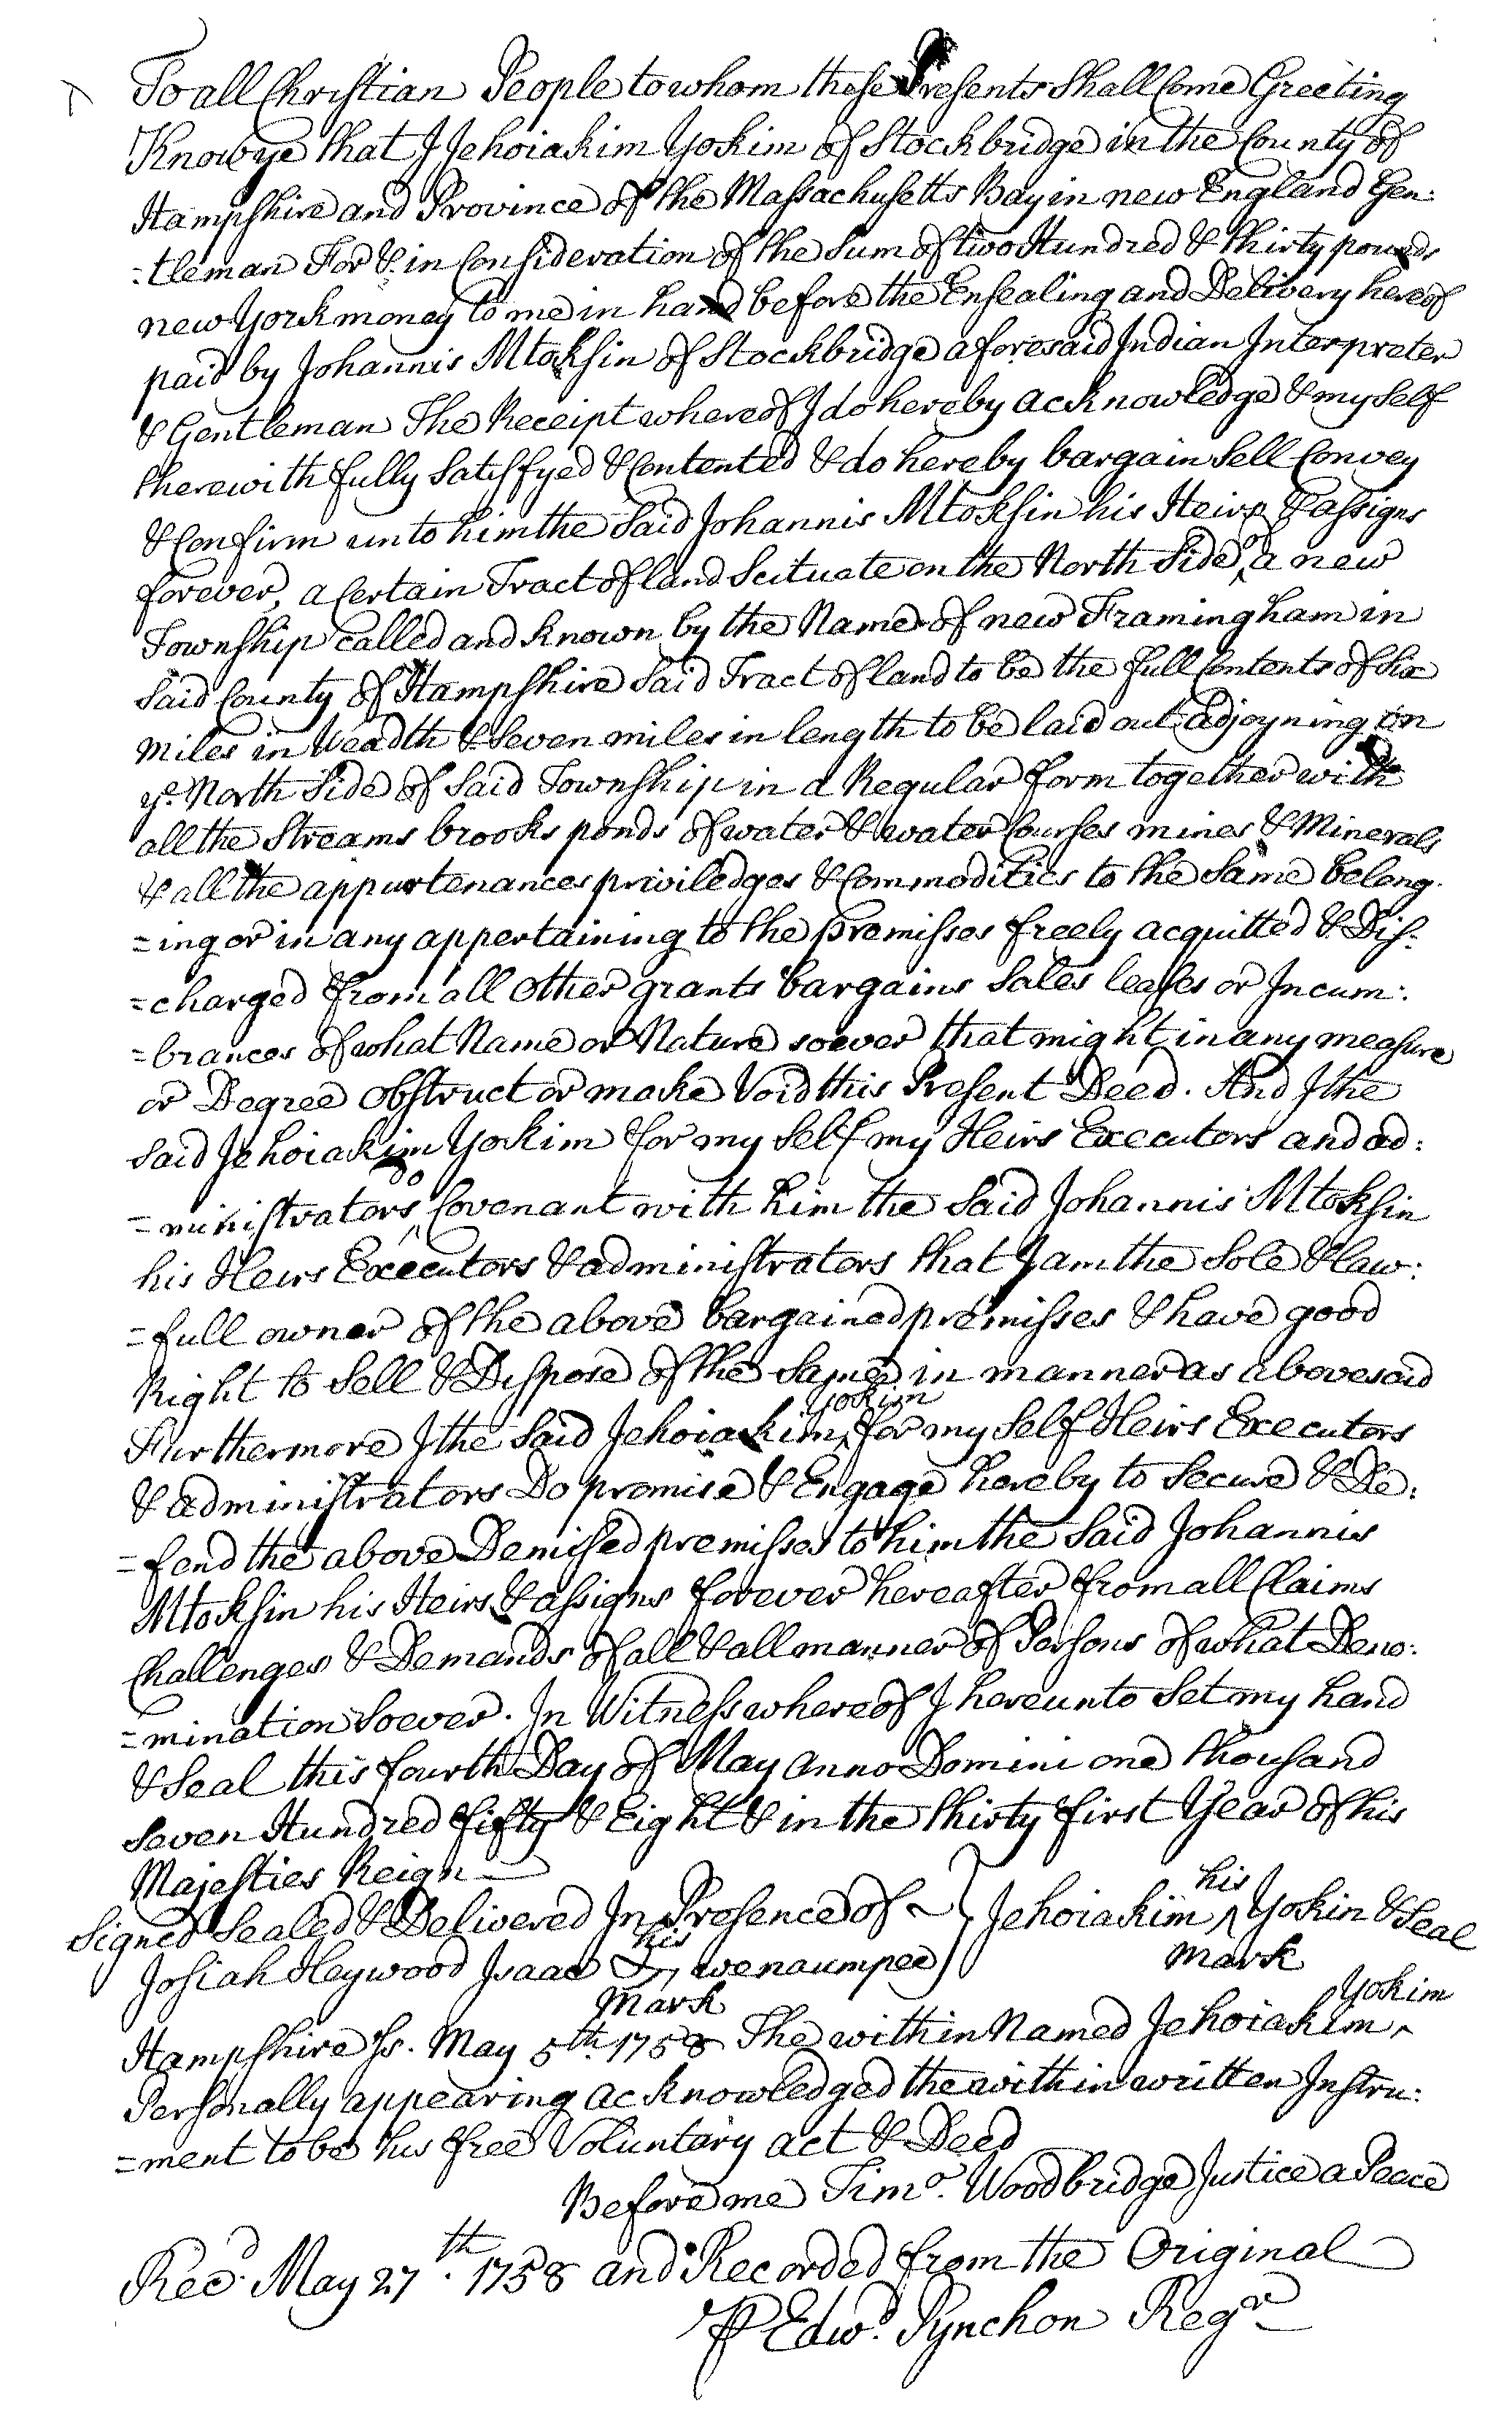 To all Christian People to whom these Presents Shall Come Greeting
Know ye that I Jehoiakim Yokim of Stockbridge in the County of
Hampshire and Province of the Massachusetts Bay in new England Gen:
=tleman For & in Consideration of the Sum of two Hundred & thirty pounds
new York money to me in hand before the Ensealing and Delivery hereof
paid by Johannis Mtoksin of Stockbridge aforesaid Indian Interpreter
& Gentleman The Receipt whereof I do hereby acknowledge & my Self
therewith fully Satisfyed & Contented & do hereby bargain Sell Convey
& Confirm unto him the Said Johannis Mtoksin his Heirs & assigns
forever, a Certain Tract of land Scituate on the North Side of a new
Township called and known by the Name of new Framingham in
Said County of Hampshire Said Tract of land to be the full Contents of Six
miles in Weadth & Seven miles in length to be laid out adjoyning on
ye. North Side of Said Township in a Regular form together with
all the Streams brooks ponds of water & water Courses mines & Minerals
& all the appurtenances priviledges & Commodities to the Same belong
=ing or in any appertaining to the premisses freely acquitted & Dis:
=charged from all other grants bargains Sales leases or Incum:
=brances of what Name or Nature soever that might in any measure
or Degree obstruct or make Void this Present Deed. And I the
Said Jehoiakim Yokim for my Self my Heirs Executors and ad:
=ministrators do Covenant with him the Said Johannis Mtoksin
his Heirs Executors & administrators that I am the Sole & law:
=full owner of the above bargained premisses & have good
Right to Sell & Dispose of the Same in manner as abovesaid
Furthermore I the Said Jehoiakim Yokim for my Self Heirs Executors
& administrators Do promise & Engage hereby to Secure & De:
=fend the above Demissed premisses to him the Said Johannis
Mtoksin his Heirs & assigns forever hereafter from all Claims
Challenges & Demands of all & all manner of Persons of what Deno:
=mination Soever. In Witness whereof I hereunto Set my hand
& Seal this fourth Day of May anno Domini one thousand
Seven Hundred fifty & Eight & in the thirty first Year of his
Majesties Reign
Signed Sealed & Delivered In Presence of } Jehoiakim his Yokin & Seal
Josiah Heywood Isaac his wenaumpee mark
mark
Hampshire Ss. May 5th. 1758 The within Named Jehoiakim Yokim
Personally appearing acknowledged the within written Instru:
=ment to be his free Voluntary act & Deed
Before me Timo. Woodbridge Justice a Peace
Recd. May 27th. 1758 and Recorded from the Original
P Edwd. Pynchon Regr